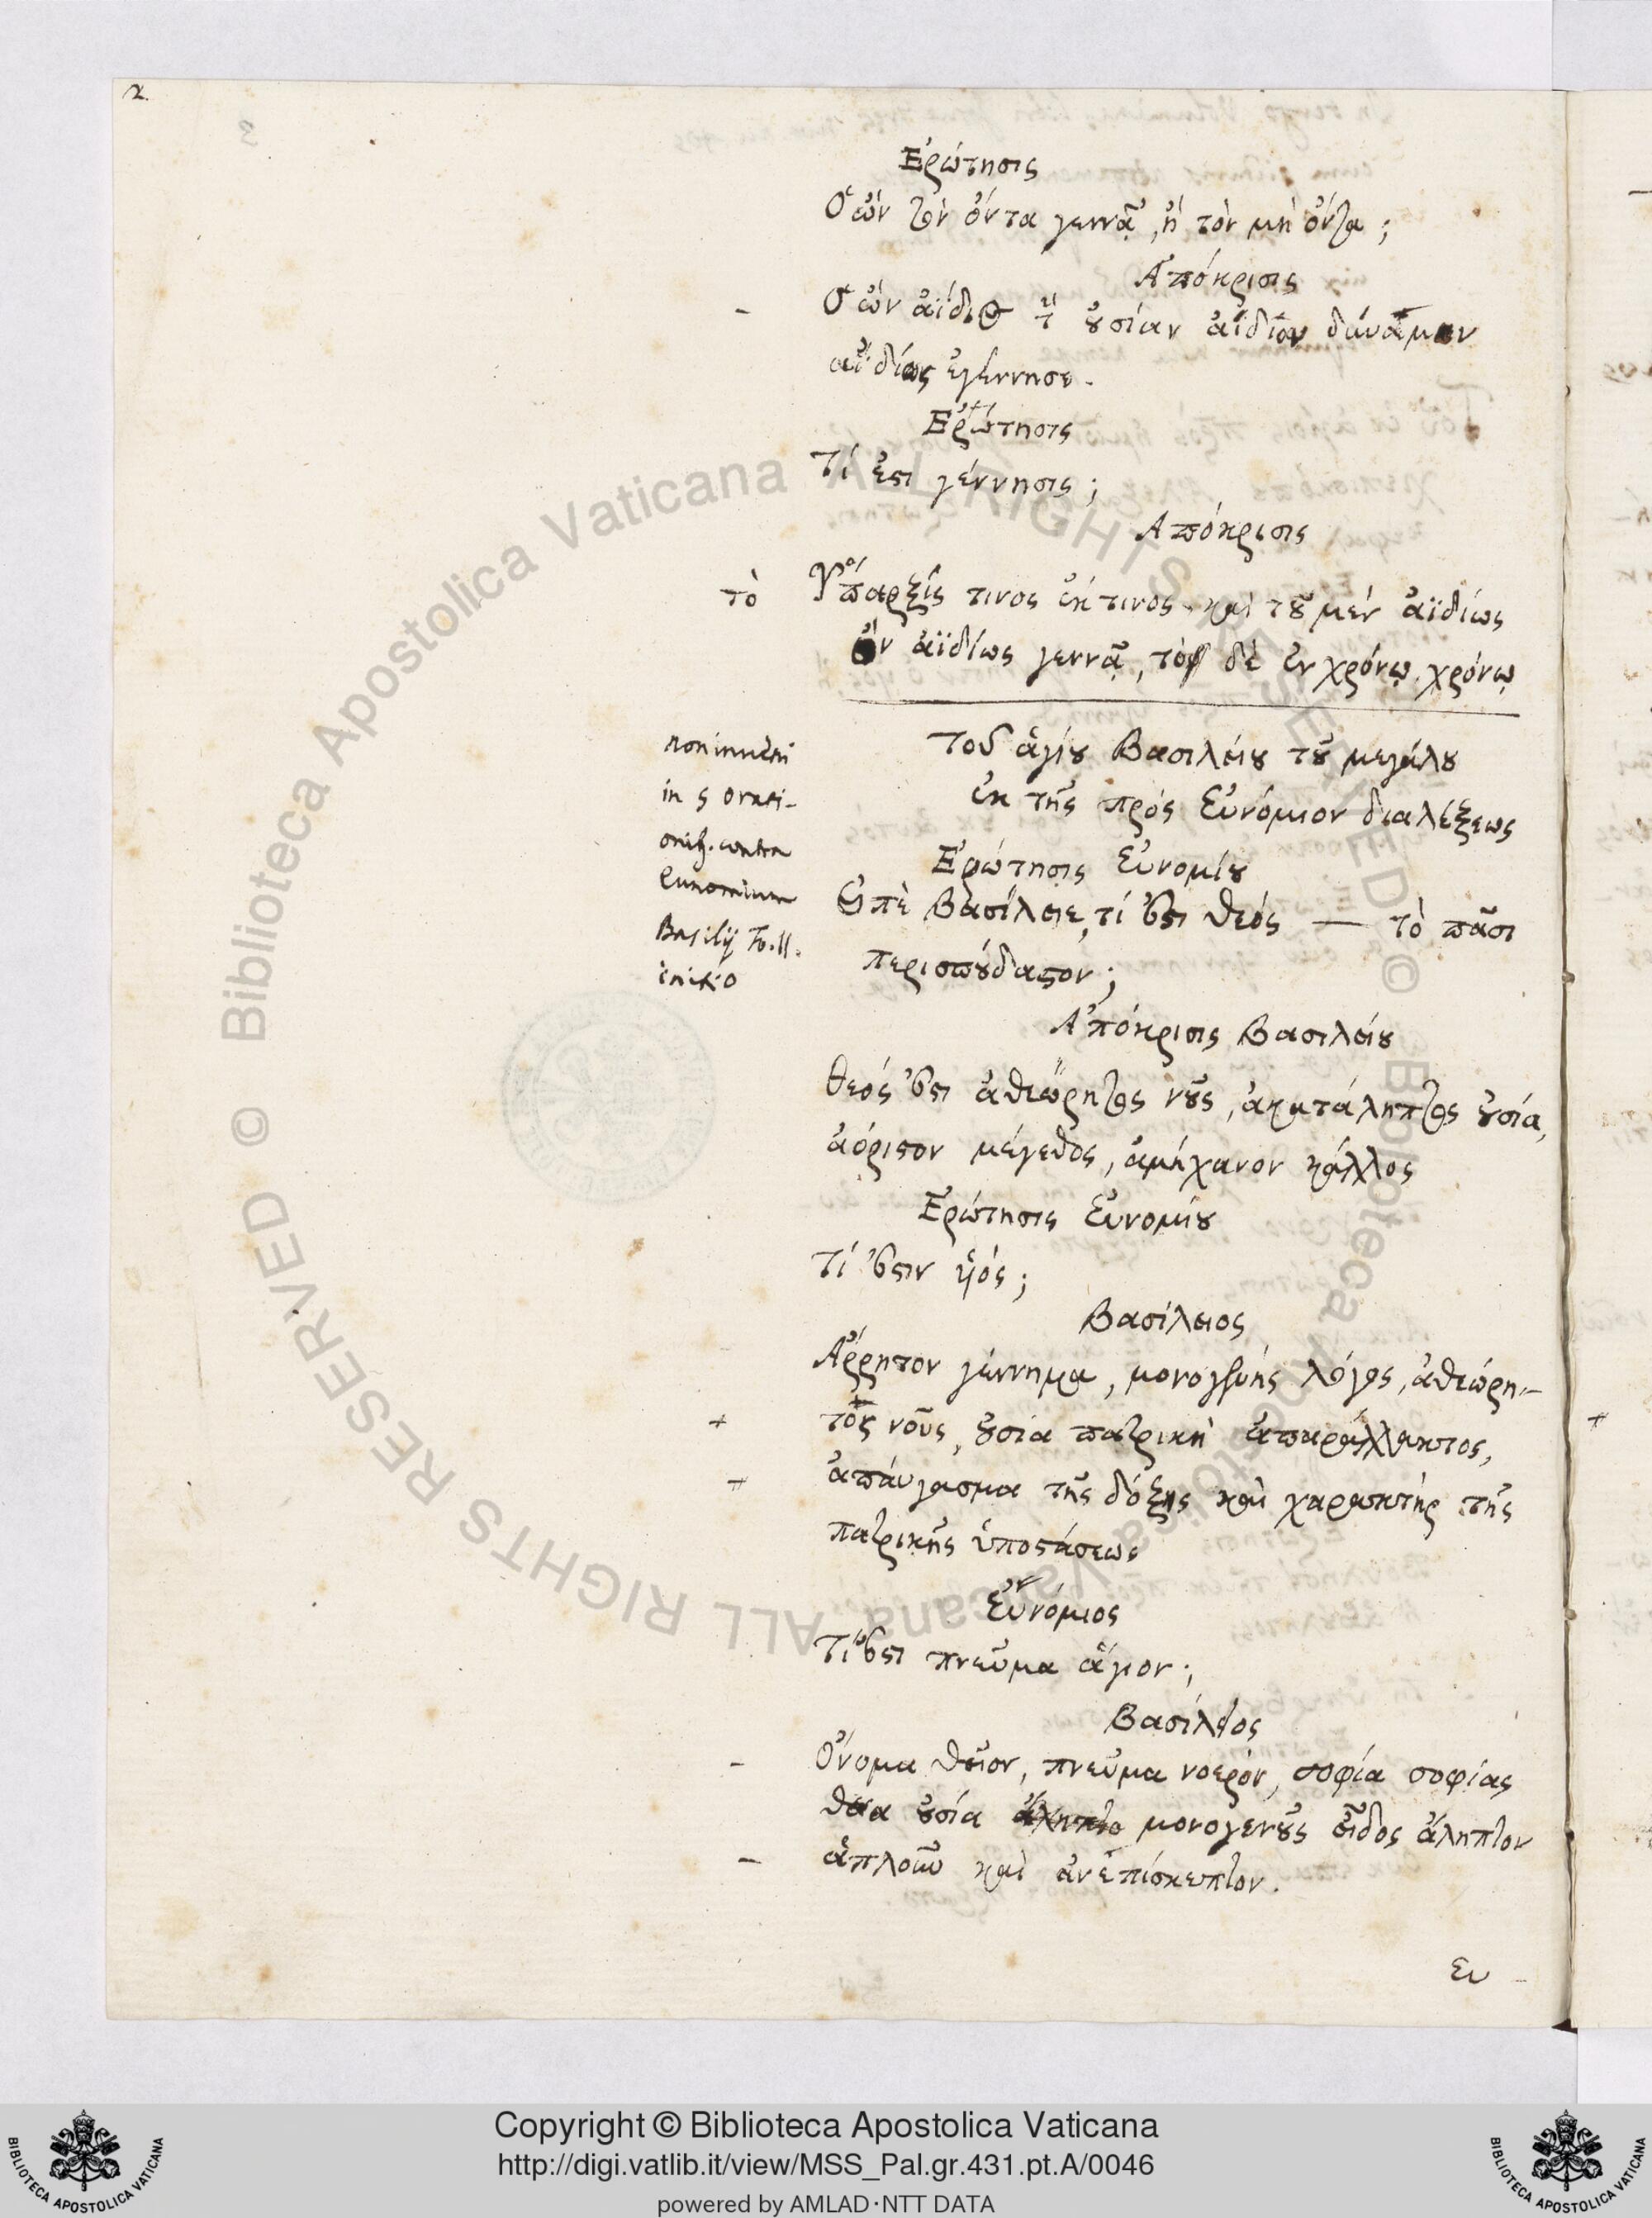 2.
Ἐρώτησις
Ὁ ὢν τὸν ὄντα γεννᾷ, ἢ τὸν μὴ ὄντα;
Ἀπόκρισις
Ὁ ὢν ἀΐδιος οὐσίαν ἀΐδιον δύναμιν
ἀϊδίως ἐγέννησε.
Ἐρώτησις
Τί ἐστι γέννησις;
Ἀπόκρισις
τὸ Ὕπαρξίς τινος ἐκ τινος. καὶ τοῦ μὲν ἀϊδίως
ὂν ἀϊδίως γεννᾷ, τὸ δὲ ἐν χρόνῳ. χρόνῳ
Τοῦ ἁγίου Βασιλείου τοῦ μεγάλου
ἐκ τῆς πρὸς Εὐνόμιον διαλέξεως
Ἐρώτησις Εὐνομίου
Εἰπὲ Βασίλειε, τί ἐστι θεός — τὸ πᾶσι
περισπούδαστον;
non inveni
in 5 orati-
onib. contra
Eunomium
Basilij
Ἀπόκρισις Βασιλείου
Θεός ἐστι ἀθεώρητος νοῦς, ἀκατάληπτος οὐσία,
ἀόριστον μέγεθος, ἀμήχανον κάλλος
Ἐρώτησις Εὐνομίου
Τί ἐστιν υἱός;
Βασίλειος
Ἄρρητον γέννημα, μονογενὴς λόγος, ἀθεώρη-
τος νοῦς, οὐσία πατρικὴ ἀπαράλλακτος,
ἀπαύγασμα τῆς δόξης καὶ χαρακτὴρ τῆς
πατρικῆς ὑποστάσεως
Εὐνόμιος
Τί ἐστι πνεῦμα ἅγιον;
Βασίλειος
Ὄνομα θεῖον, πνεῦμα νοερόν, σοφία σοφίας
θεία οὐσία μονογενοῦς εἶδος ἄληπτον
ἁπλοῦν καὶ ἀνεπίσκεπτον.
ευ
Biblioteca Apostolica Vaticana ALL RIGHTS RESERVED © Biblioteca Apostolica Vaticana ALL RIGHTS RESERVED ©
Copyright © Biblioteca Apostolica Vaticana
http://digi.vatlib.it/view/MSS_Pal.gr.431.pt.A/0046
powered by AMLAD·NTT DATA
BIBLIOTECA APOSTOLICA VATICANA
BIBLIOTECA APOSTOLICA VATICANA